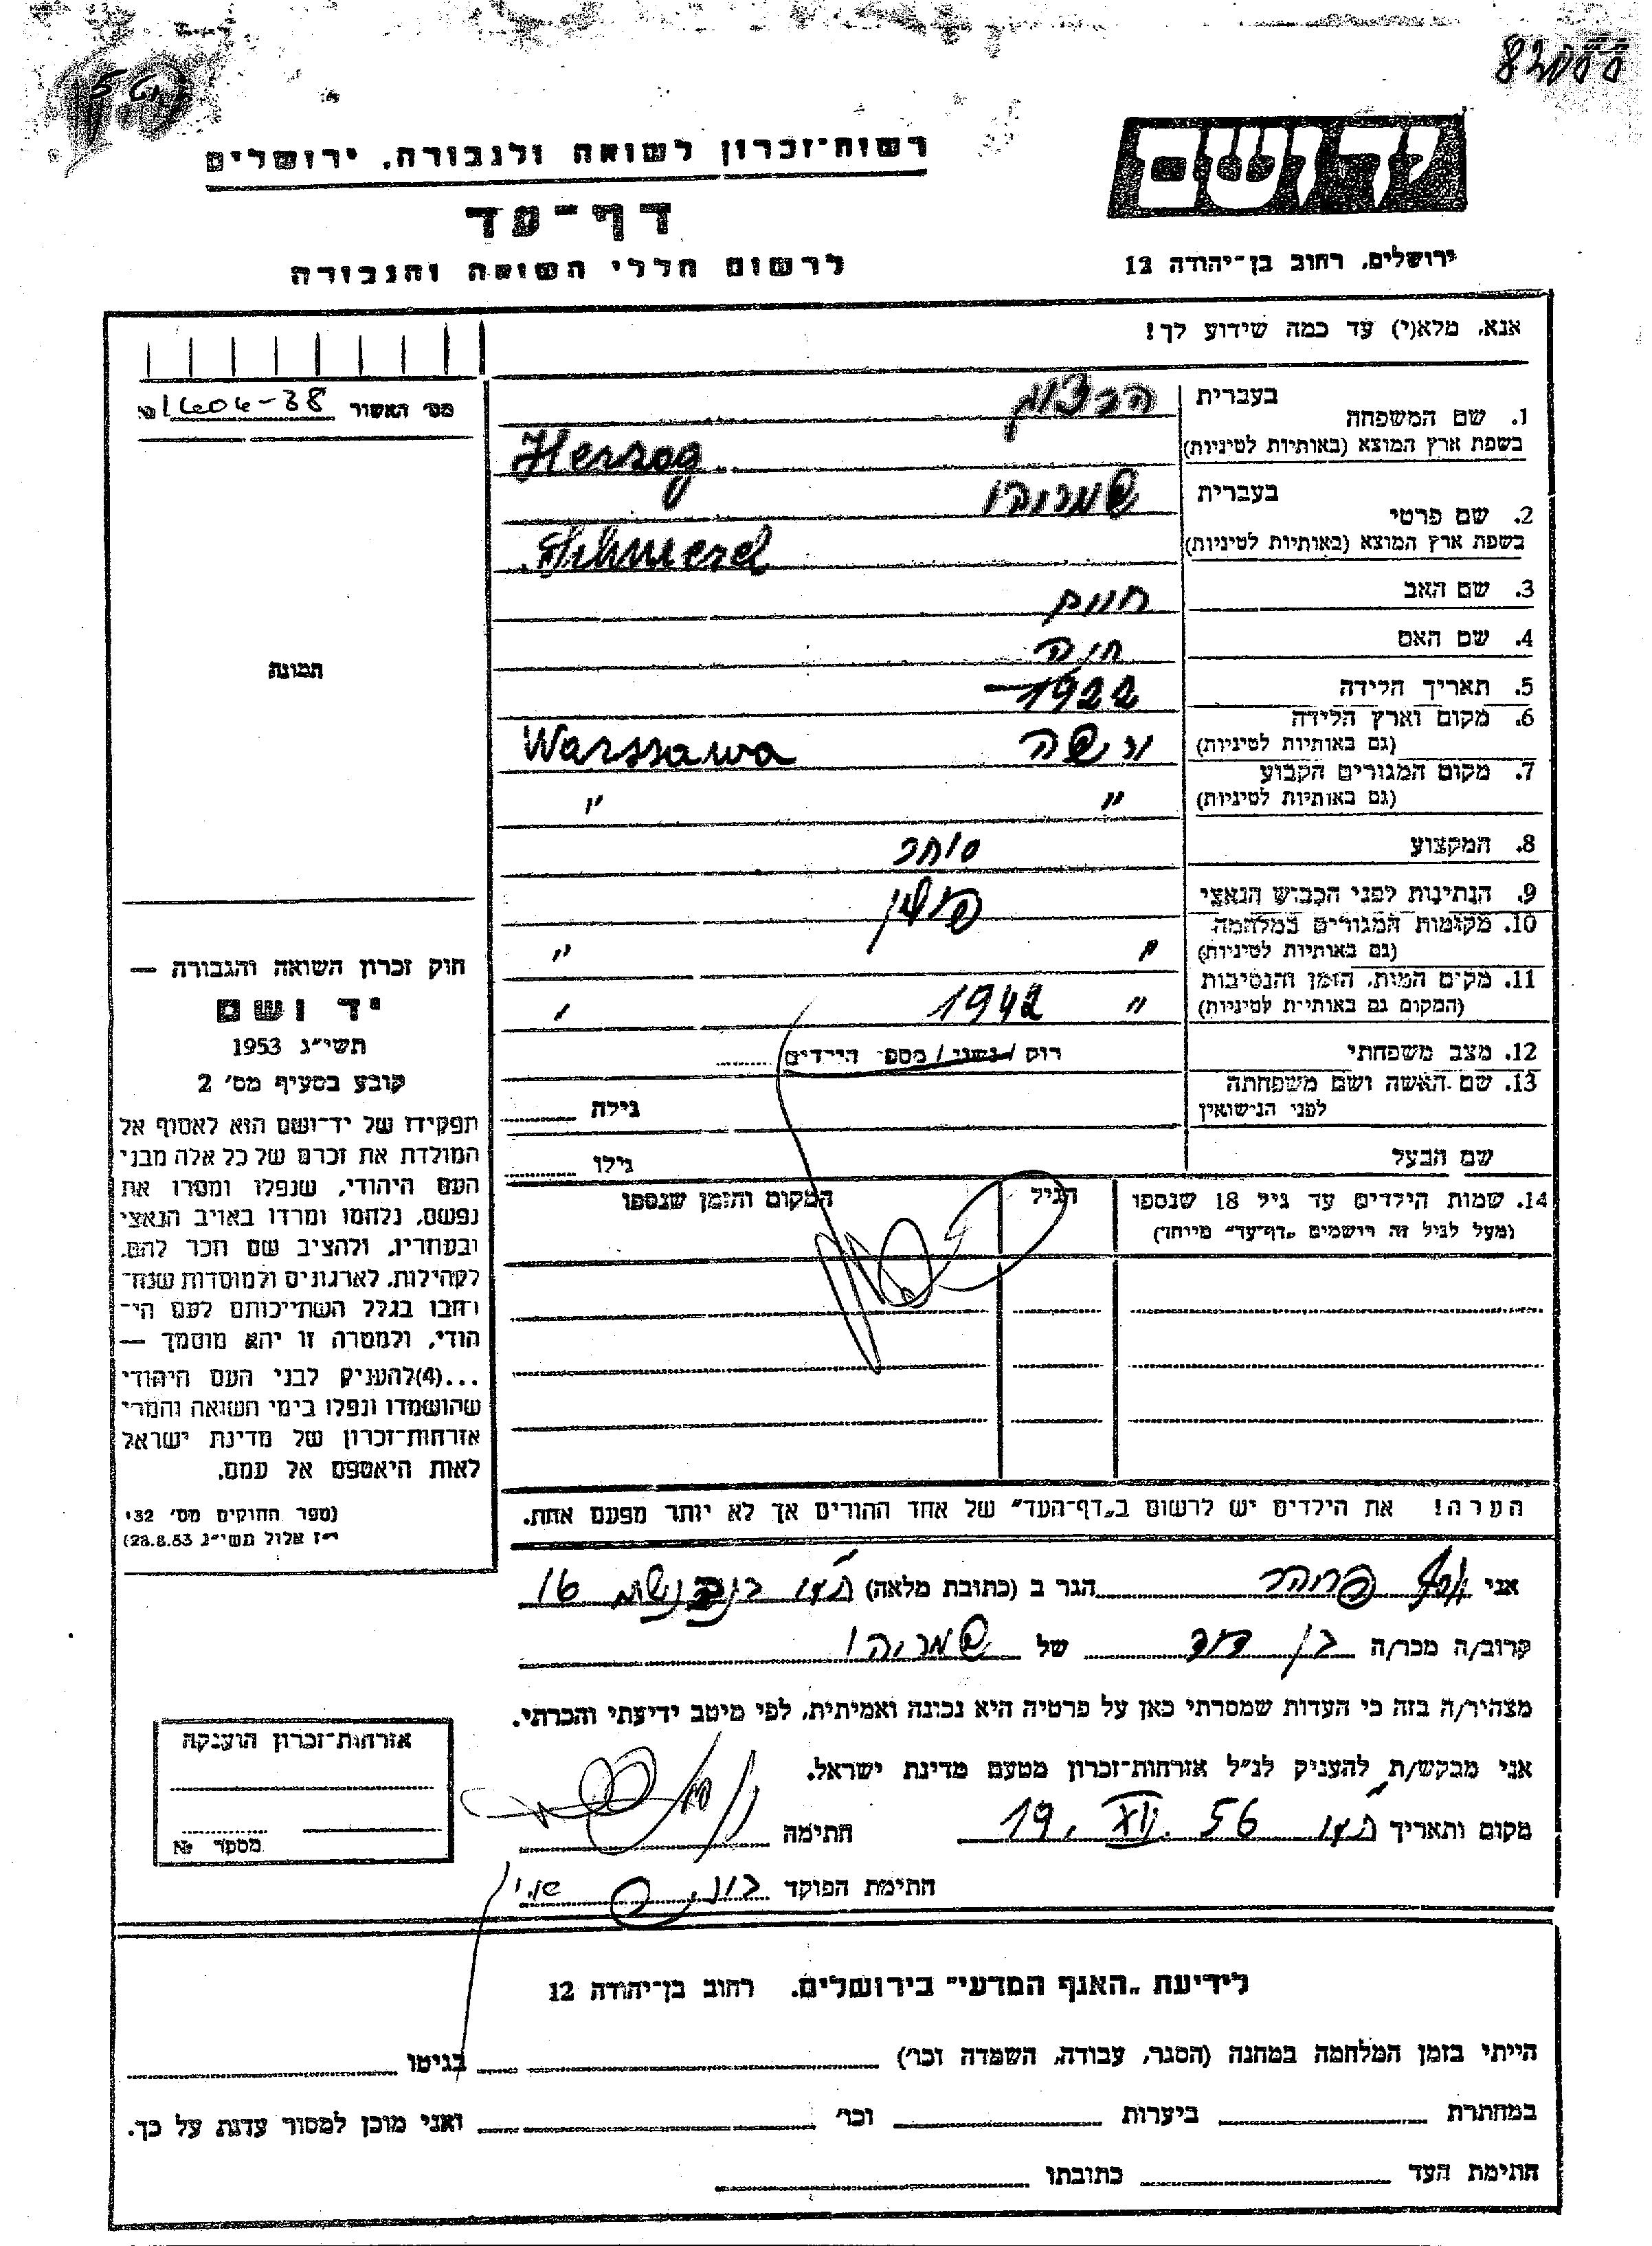 רשות־זכרון לשואה ולגבורה, ירושלים
דף־עד
לרשום חללי השואה והגבורה
ידושם
ירושלים, רחוב בן־יהודה 12
אנא, מלא(י) עד כמה שידוע לך!
מס׳ האשור № 1606-38
1. שם המשפחה
בעברית הרצוג
בשפת ארץ המוצא (באותיות לטיניות) Herzog
2. שם פרטי
בעברית שמריהו
בשפת ארץ המוצא (באותיות לטיניות)
3. שם האב חיים
4. שם האם חיה
5. תאריך הלידה 1922
6. מקום וארץ הלידה ורשה Warssawa
(גם באותיות לטיניות)
7. מקום המגורים הקבוע " "
(גם באותיות לטיניות)
8. המקצוע סוחר
9. הנתינות לפני הכבוש הנאצי
10. מקומות המגורים במלחמה " "
(גם באותיות לטיניות)
11. מקום המות, הזמן והנסיבות " 1942 "
(המקום גם באותיות לטיניות)
12. מצב משפחתי רוק / נשוי / מספר הילדים
13. שם האשה ושם משפחתה
לפני הנישואין גילה
שם הבעל גילו
14. שמות הילדים עד גיל 18 שנספו
(מעל לגיל זה רושמים „דף־עד" מיוחד)
הגיל
המקום והזמן שנספו
הערה! את הילדים יש לרשום ב„דף־העד" של אחד ההורים אך לא יותר מפעם אחת.
תמונה
חוק זכרון השואה והגבורה —
יד ושם
תשי״ג 1953
קובע בסעיף מס׳ 2
תפקידו של יד־ושם הוא לאסוף אל
המולדת את זכרם של כל אלה מבני
העם היהודי, שנפלו ומסרו את
נפשם, נלחמו ומרדו באויב הנאצי
ובעוזריו, ולהציב שם וזכר להם,
לקהילות, לארגונים ולמוסדות שנח־
רחבו בגלל השתייכותם לעם הי־
הודי, ולמטרה זו יהא מוסמך —
...(4)להעניק לבני העם היהודי
שהושמדו ונפלו בימי השואה והמרי
אזרחות־זכרון של מדינת ישראל
לאות היאספם אל עמם.
(ספר החוקים מס׳ 132
י״ז אלול תשי״ג 28.8.53)
אני יוסף הגר ב (כתובת מלאה) ת״א 16
קרוב/ה מכר/ה בן דוד של שמריהו
מצהיר/ה בזה כי העדות שמסרתי כאן על פרטיה היא נכונה ואמיתית, לפי מיטב ידיעתי והכרתי.
אני מבקש/ת להעניק לנ״ל אזרחות־זכרון מטעם מדינת ישראל.
מקום ותאריך ת״א 19. XII. 56 חתימה
חתימת הפוקד
אזרחות־זכרון הוענקה
מספר №
לידיעת „האגף המדעי" בירושלים, רחוב בן־יהודה 12
הייתי בזמן המלחמה במחנה (הסגר, עבודה, השמדה וכו׳) בגיטו
במחתרת ביערות וכו׳ ואני מוכן למסור עדות על כך.
חתימת העד כתובתו